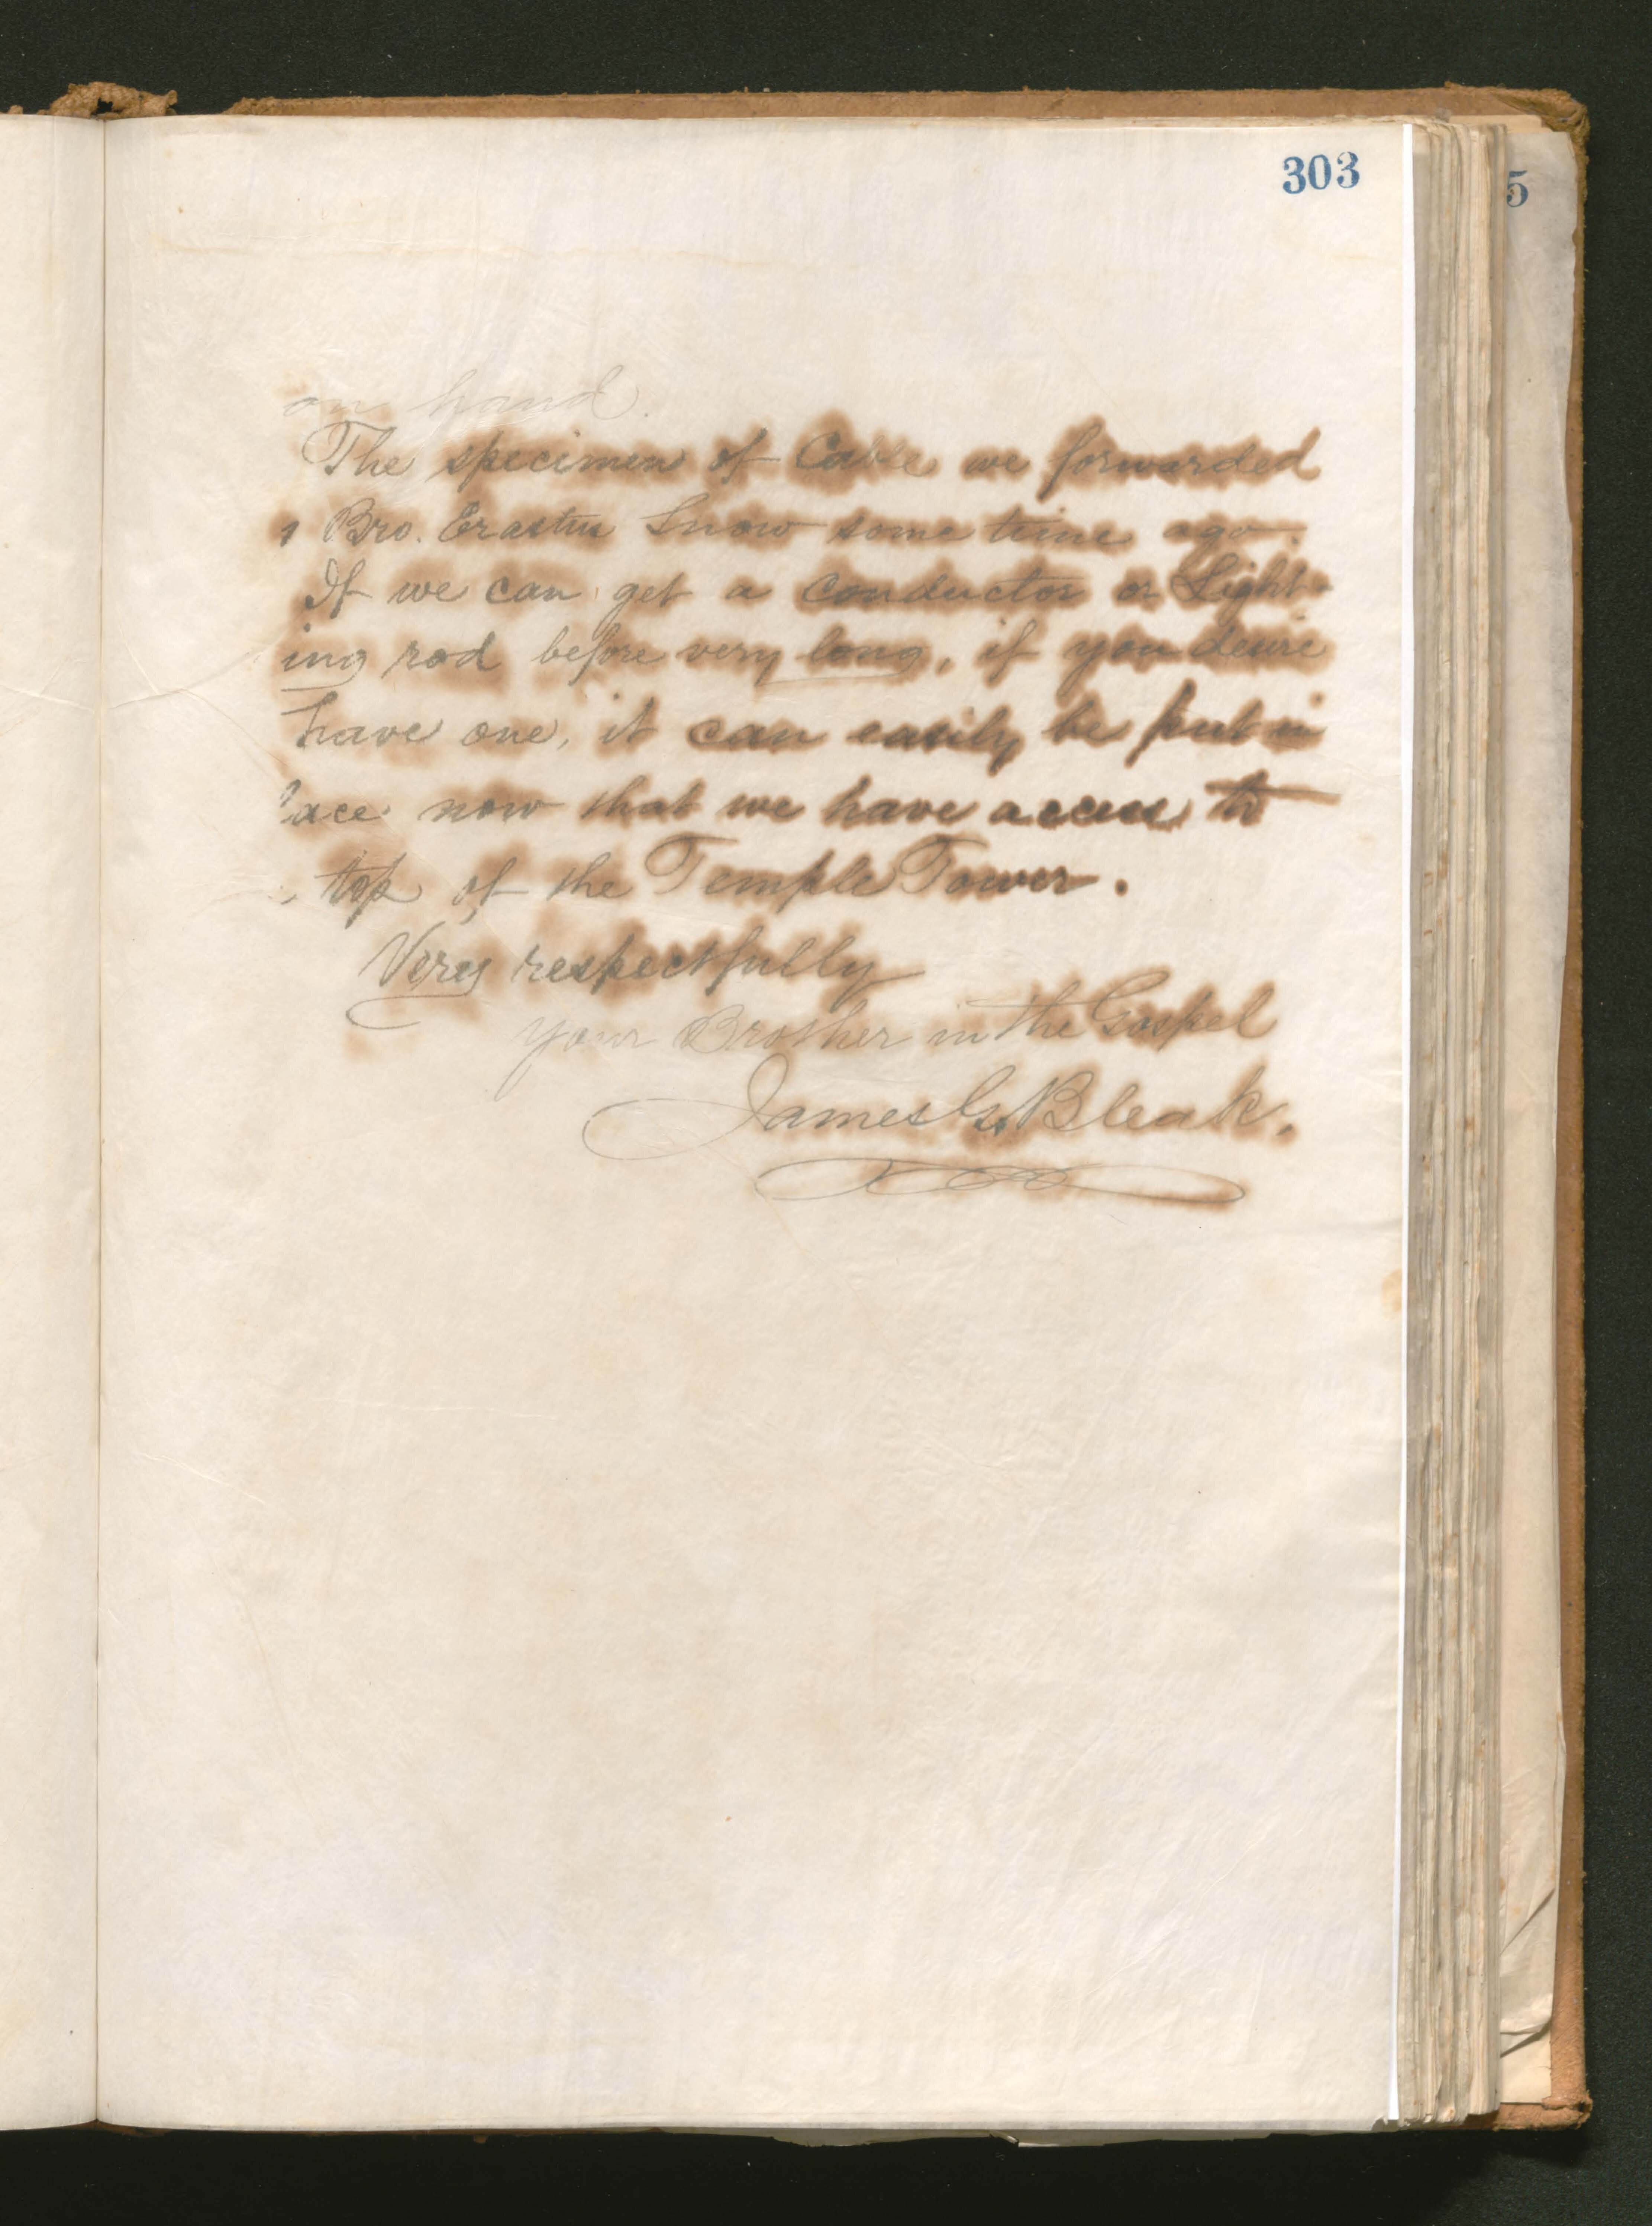 303
5
on hand.
The specimen of Cable we forwarded
Bro. Erastus Snow some time ago.
If we can get a conductor or Light-
ing rod before very long, if you desire
have one, it can easily be put in
lace now that we have access to
top of the Temple Tower.
Very respectfully
your Brother in the Gospel
James G. Bleak.